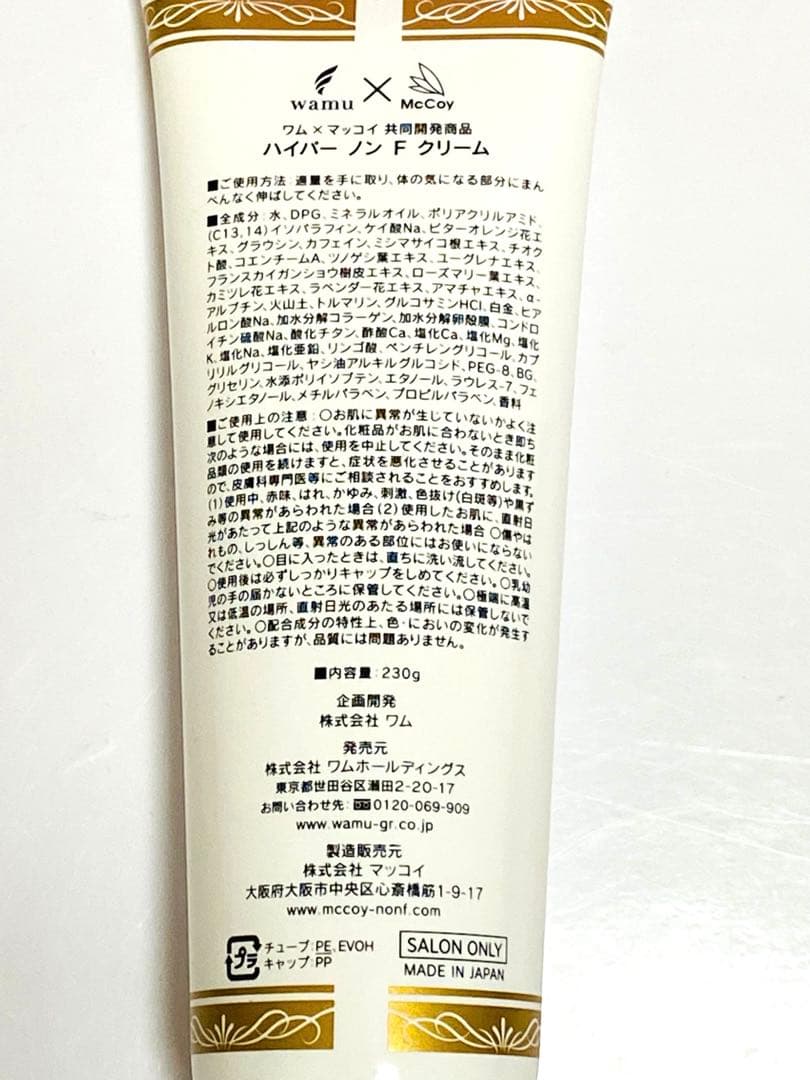 wamu × McCoy
ワム×マッコイ 共同開発商品
ハイパー ノン F クリーム
■ご使用方法：適量を手に取り、体の気になる部分にまん
べんなく伸ばしてください。
■全成分：水、DPG、ミネラルオイル、ポリアクリルアミド、
(C13,14)イソパラフィン、ケイ酸Na、ビターオレンジ花エ
キス、グラウシン、カフェイン、ミシマサイコ根エキス、チオク
ト酸、コエンチームA、ツノゲシ葉エキス、ユーグレナエキス、
フランスカイガンショウ樹皮エキス、ローズマリー葉エキス、
カミツレ花エキス、ラベンダー花エキス、アマチャエキス、α-
アルブチン、火山土、トルマリン、グルコサミンHCl、白金、ヒア
ルロン酸Na、加水分解コラーゲン、加水分解卵殻膜、コンドロ
イチン硫酸Na、酸化チタン、酢酸Ca、塩化Ca、塩化Mg、塩化
K、塩化Na、塩化亜鉛、リンゴ酸、ペンチレングリコール、カプ
リリルグリコール、ヤシ油アルキルグルコシド、PEG-8、BG、
グリセリン、水添ポリイソブテン、エタノール、ラウレス-7、フェ
ノキシエタノール、メチルパラベン、プロピルパラベン、香料
■ご使用上の注意：○お肌に異常が生じていないかよく注
意して使用してください。化粧品がお肌に合わないとき即ち
次のような場合には、使用を中止してください。そのまま化粧
品類の使用を続けますと、症状を悪化させることがあります
ので、皮膚科専門医等にご相談されることをおすすめします。
(1)使用中、赤味、はれ、かゆみ、刺激、色抜け(白斑等)や黒ず
み等の異常があらわれた場合(2)使用したお肌に、直射日
光があたって上記のような異常があらわれた場合 ○傷やは
れもの、しっしん等、異常のある部位にはお使いにならない
でください。○目に入ったときは、直ちに洗い流してください。
○使用後は必ずしっかりキャップをしめてください。○乳幼
児の手の届かないところに保管してください。○極端に高温
又は低温の場所、直射日光のあたる場所には保管しないで
ください。○配合成分の特性上、色・においの変化が発生す
ることがありますが、品質には問題ありません。
■内容量：230g
企画開発
株式会社 ワム
発売元
株式会社 ワムホールディングス
東京都世田谷区瀬田2-20-17
お問い合わせ先：0120-069-909
www.wamu-gr.co.jp
製造販売元
株式会社 マッコイ
大阪府大阪市中央区心斎橋筋1-9-17
www.mccoy-nonf.com
プラ チューブ：PE、EVOH
キャップ：PP
SALON ONLY
MADE IN JAPAN